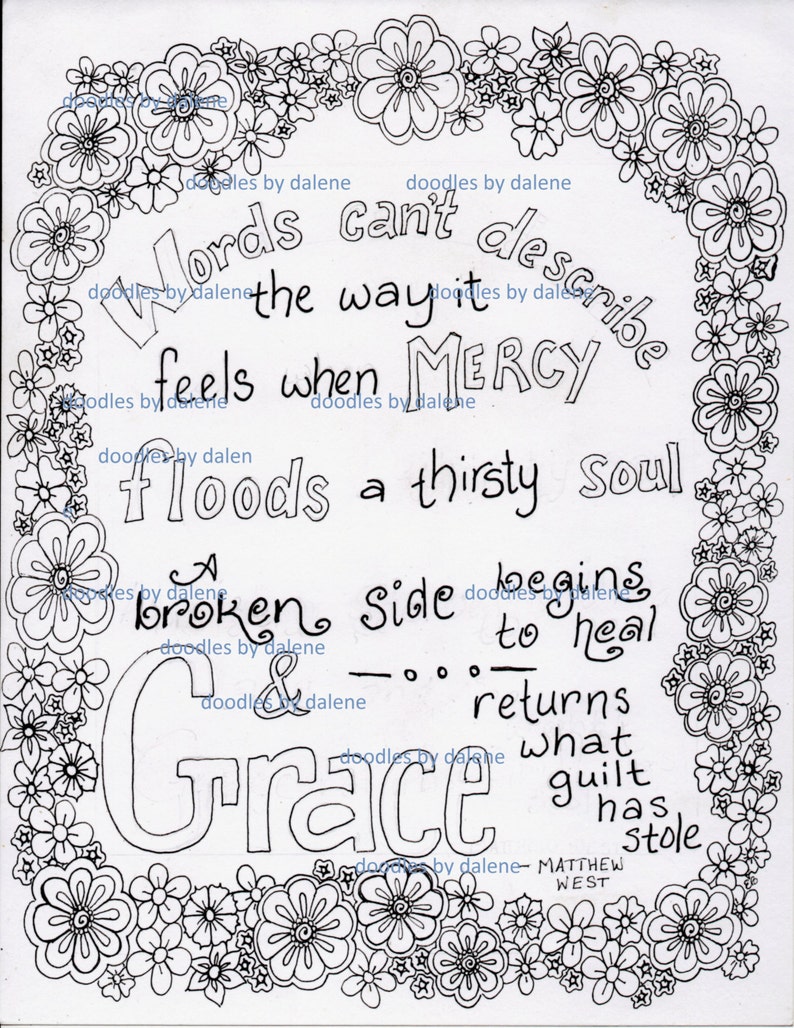 doodles by dalene
doodles by dalene doodles by dalene
Words can't describe
doodles by dalene doodles by dalene
the way it
feels when MERCY
doodles by dalene doodles by dalene
doodles by dalen
floods a thirsty soul
A
doodles by dalene doodles by dalene
broken side begins
to heal
doodles by dalene
&
doodles by dalene
Grace returns
what
doodles by dalene
guilt
has
stole
doodles by dalene
- MATTHEW
WEST